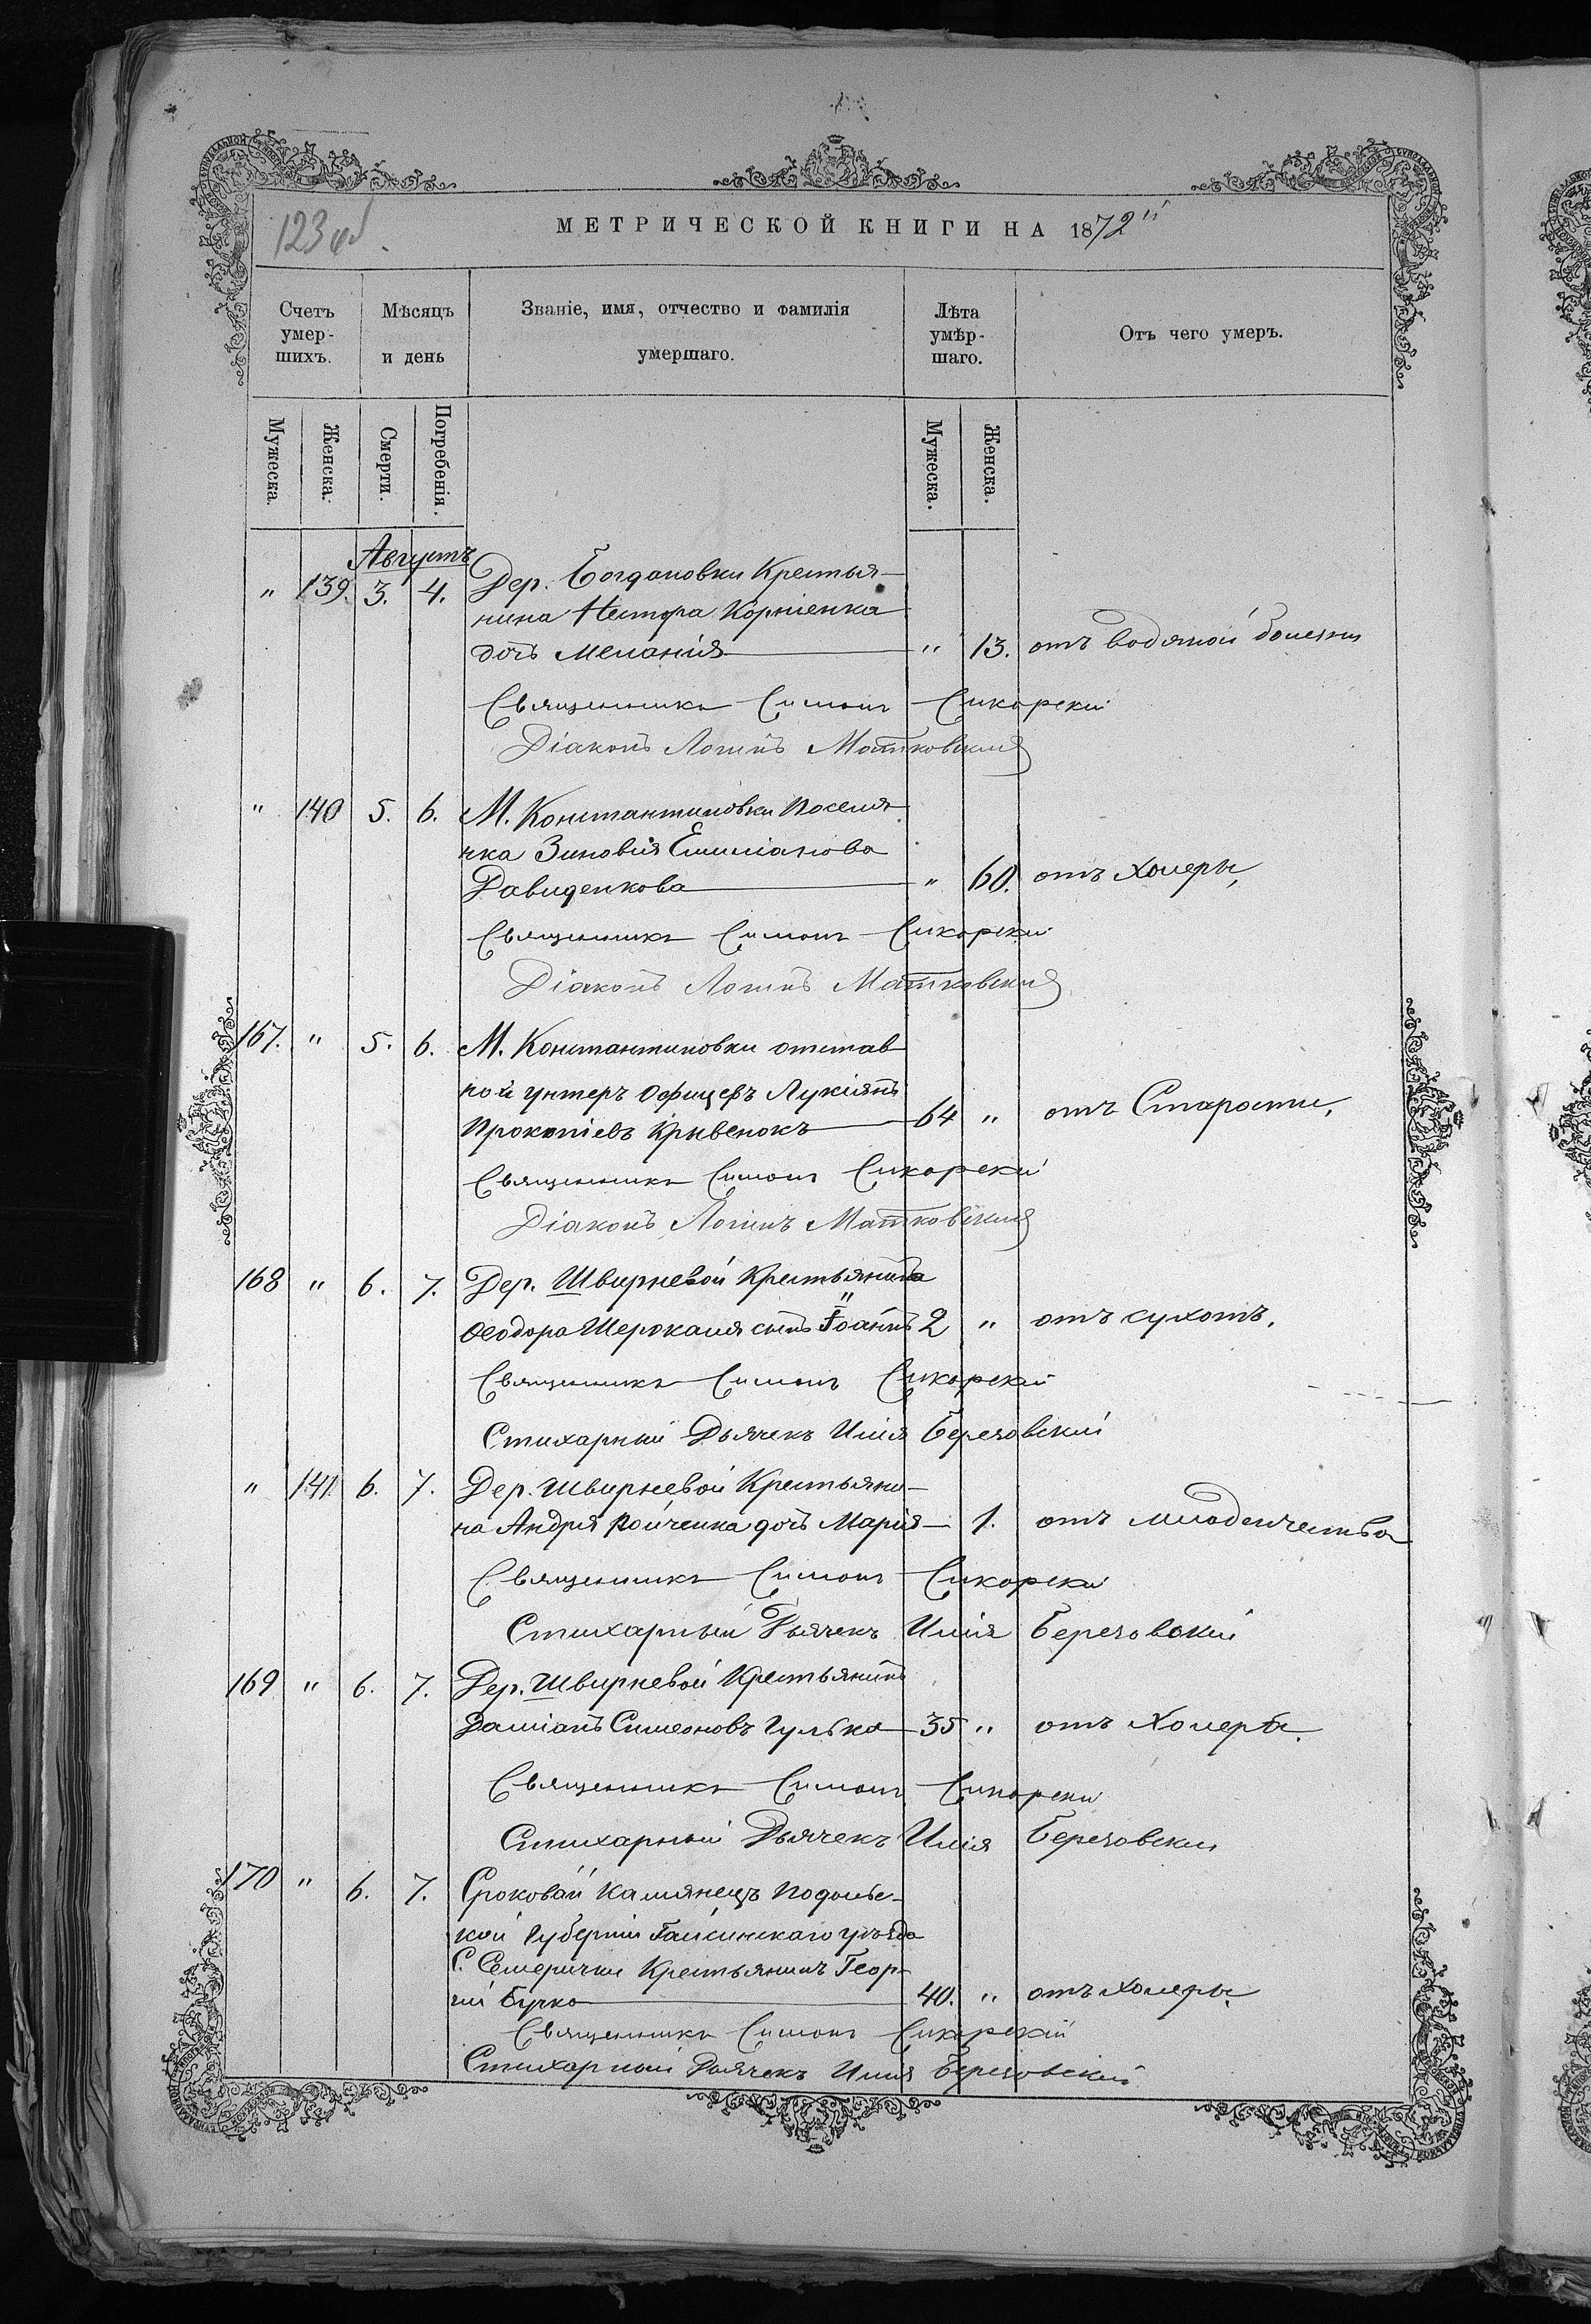 123 об.
МЕТРИЧЕСКОЙ КНИГИ НА 1872й
Счетъ умер-шихъ.
Мѣсяцъ и день
Званіе, имя, отчество и фамилія умершаго.
Лѣта умѣр-шаго.
Отъ чего умеръ.
Мужеска.
Женска.
Смерти.
Погребенія.
Мужеска.
Женска.
Августъ
" 139. 3. 4. Дер. Богдановки Крестья-
нина Нестора Корніенка
дочь Меланія " 13. отъ водяной болезни
Священникъ Симонъ Сикорскій
Діаконъ Логинъ Матковскій
" 140 5. 6. М. Константиновки поселя-
чка Зиновія Емиліанова
Давиденкова " 60. отъ холеры,
Священникъ Симонъ Сикорскій
Діаконъ Логинъ Матковскій
167. " 5. 6. М. Константиновки отстав
ной унтеръ офицеръ Лукіянъ
Прокопіевъ Кривенокъ 64 " отъ Старости,
Священникъ Симонъ Сикорскій
Діаконъ Логинъ Матковскій
168 " 6. 7. Дер. Швырневой Крестьянина
Ѳеодора Шерокаля сынъ Іоаннъ 2 " отъ сухотъ.
Священникъ Симонъ Сикорскій
Стихарный Дьячекъ Илія Березовскій
" 141 6. 7. Дер. Швырневой Крестьяни-
на Андрія Ройченка дочь Марія 1. отъ младенчества
Священникъ Симонъ Сикорскій
Стихарный Дьячекъ Илія Березовскій
169 " 6. 7. Дер. Швырневой Крестьянинъ
Даміанъ Симеоновъ Гулька 35 " отъ Холеры.
Священникъ Симонъ Сикорскій
Стихарный Дьячекъ Илія Березовскій
170 " 6. 7. Сроковой Камянецъ Подоль-
кой Губерніи Гайсинскаго уѣзда
С. Семерички Крестьянинъ Геор-
гій Бурко 40. " отъ холеры
Священникъ Симонъ Сикорскій
Стихарный Дьячекъ Илія Березовскій